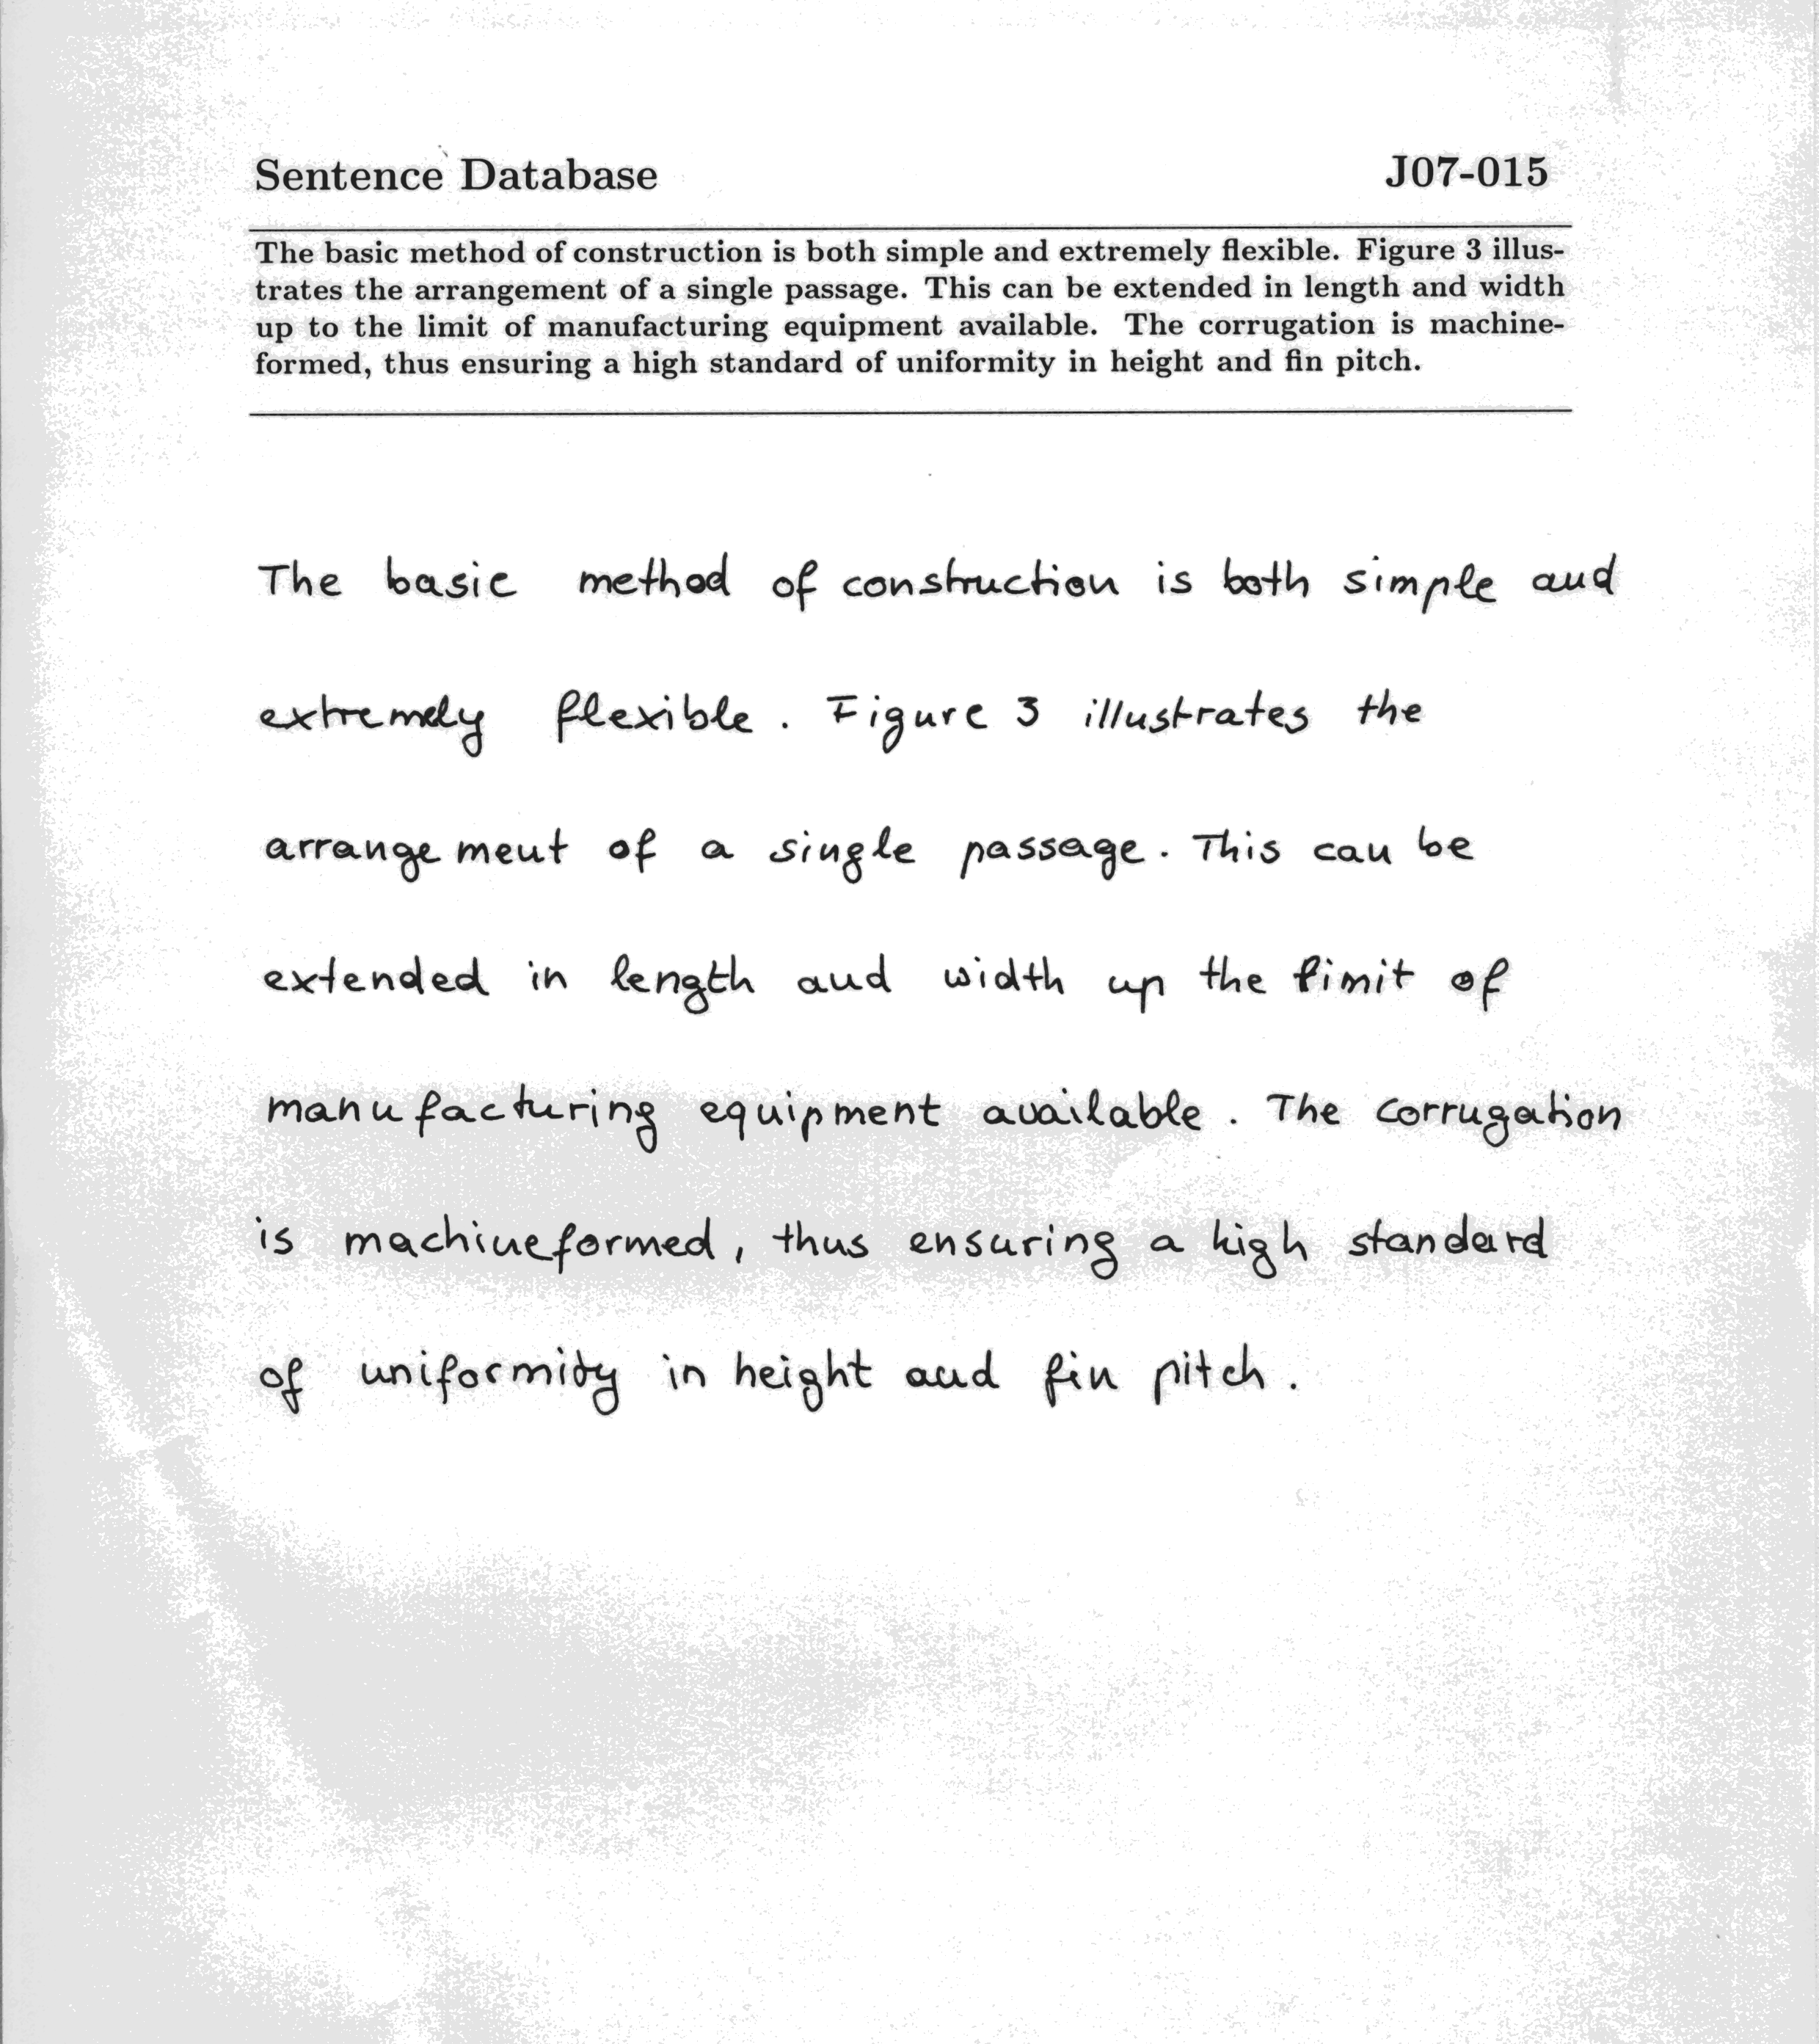 Sentence Database J07-015
The basic method of construction is both simple and extremely flexible. Figure 3 illus-
trates the arrangement of a single passage. This can be extended in length and width
up to the limit of manufacturing equipment available. The corrugation is machine-
formed, thus ensuring a high standard of uniformity in height and fin pitch.
The basic method of construction is both simple and
extremely flexible. Figure 3 illustrates the
arrangement of a single passage. This can be
extended in length and width up the limit of
manufacturing equipment available. The corrugation
is machineformed, thus ensuring a high standard
of uniformity in height and fin pitch.